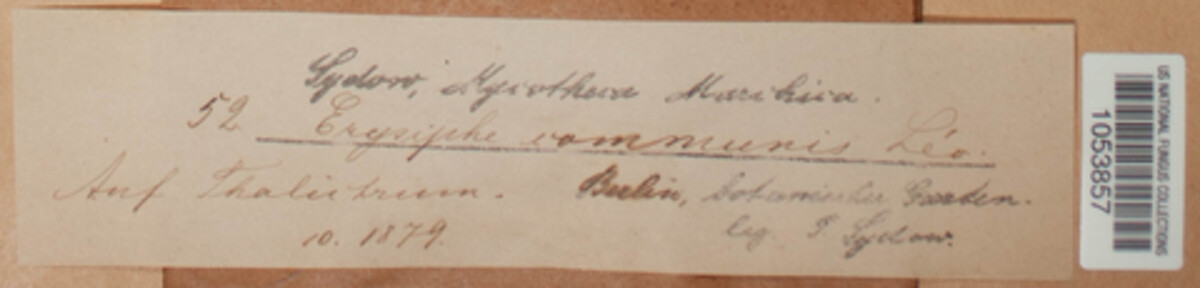 Sydow, Mycotheca Marchica.
52 Erysiphe communis Lév.
Auf Thalictrum. Berlin, botanischer Garten.
10. 1879. leg. P. Sydow.
US NATIONAL FUNGUS COLLECTIONS
1053857